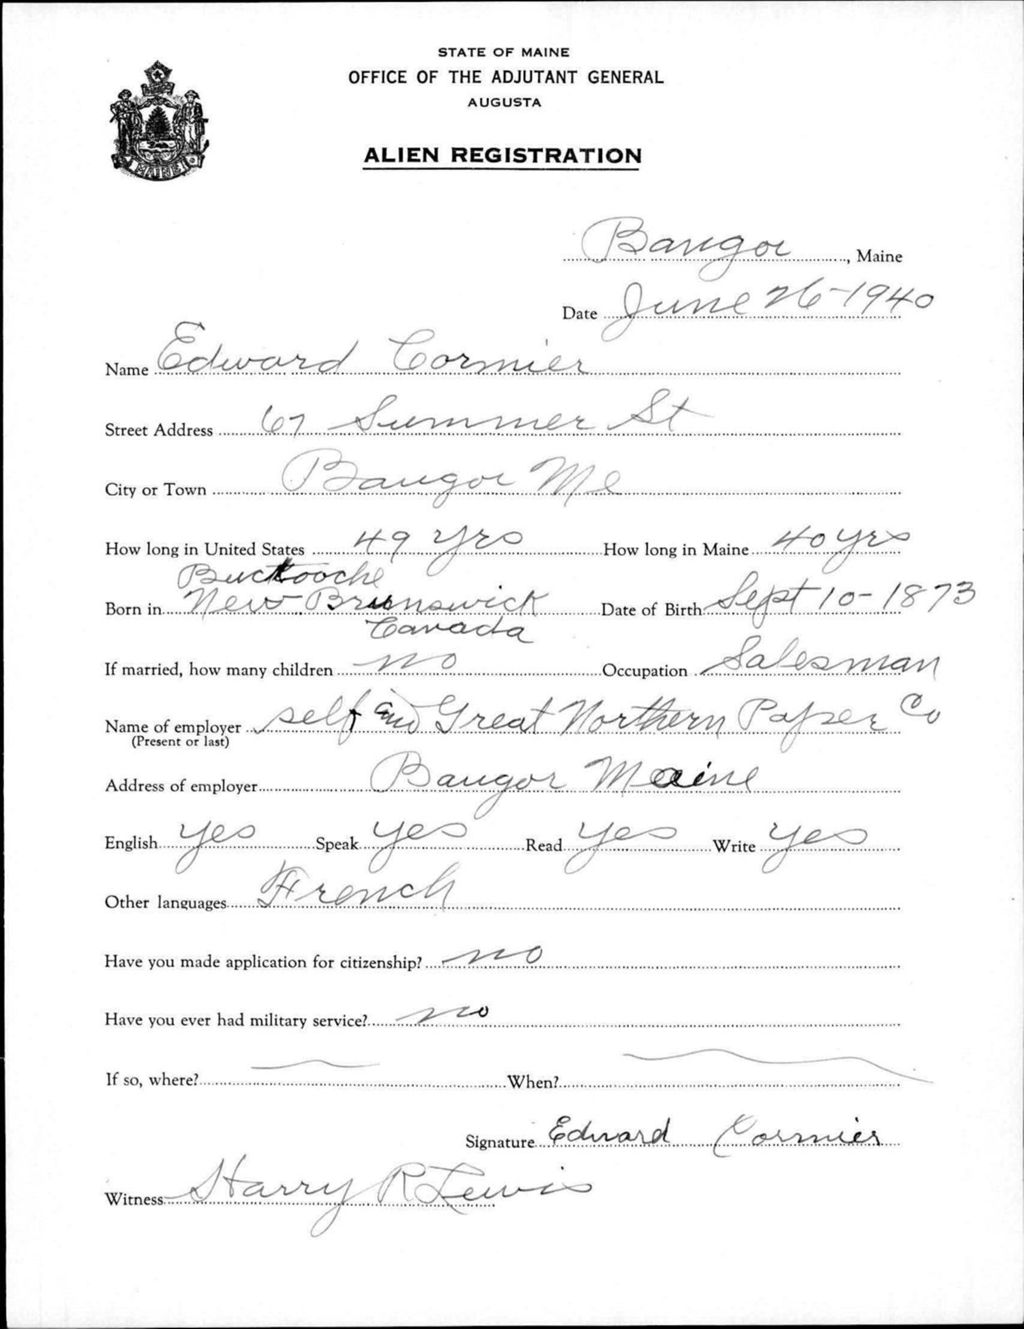 STATE OF MAINE
OFFICE OF THE ADJUTANT GENERAL
AUGUSTA
ALIEN REGISTRATION
MAINE
Bangor, Maine
Date June 26-1940
Name Edward Cormier
Street Address 67 Summer St
City or Town Bangor Me
How long in United States 49 yrs How long in Maine 40 yrs
Buctooche
Born in New Brunswick Date of Birth Sept 10-1873
Canada
If married, how many children no Occupation Salesman
Name of employer self and Great Northern Paper Co
(Present or last)
Address of employer Bangor Maine
English yes Speak yes Read yes Write yes
Other languages French
Have you made application for citizenship? no
Have you ever had military service? no
If so, where? When?
Signature Edward Cormier
Witness Harry R Lewis